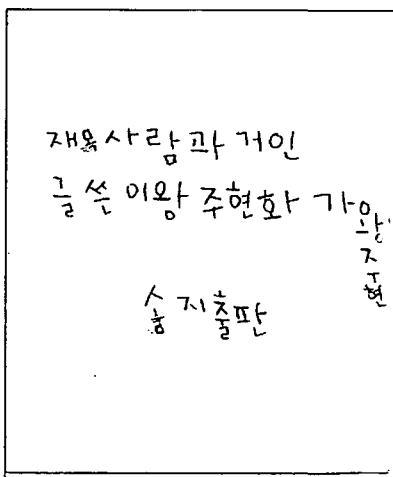 재목사람과 거인
글 쓴 이왕 주현화 가왕주현
숭지출판